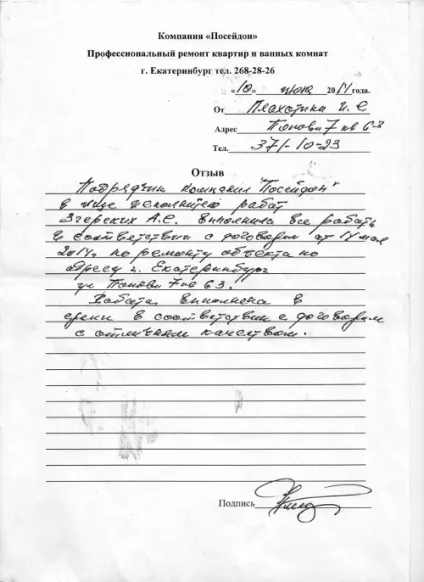 Компания «Посейдон»
Профессиональный ремонт квартир и ванных комнат
г. Екатеринбург тел. 268-28-26
«10» июня 2014 года.
От Плахотина И. С
Адрес Попова 7 кв 63
Тел. 371-10-23
Отзыв
Подрядчик компания "Посейдон"
в лице исполнителя работ
Згерских А.С. выполнила все работы
в соответствии с договором от 14 мая
2014. по ремонту объекта по
адресу г. Екатеринбург
ул Попова 7 кв 63.
Работа выполнена в
сроки в соответствии с договором
с отличным качеством.
Подпись